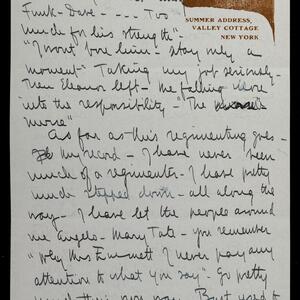 SUMMER ADDRESS,
VALLEY COTTAGE
NEW YORK
Funk - Dave - - - - . Too
much for his strength"-
"I won't bore him - stay only a
moment" Taking my job seriously -
Then Eleanor left - Me falling
into the responsibility - "The
nurse"
As far as this regimenting goes -
my record - I have never been
much of a regimenter - I have pretty
much stepped down - all along the
way - I have let the people around
me - Mary Tate - you remember
"Why Mrs Emmett I never pay any
attention to what you say" - So pretty